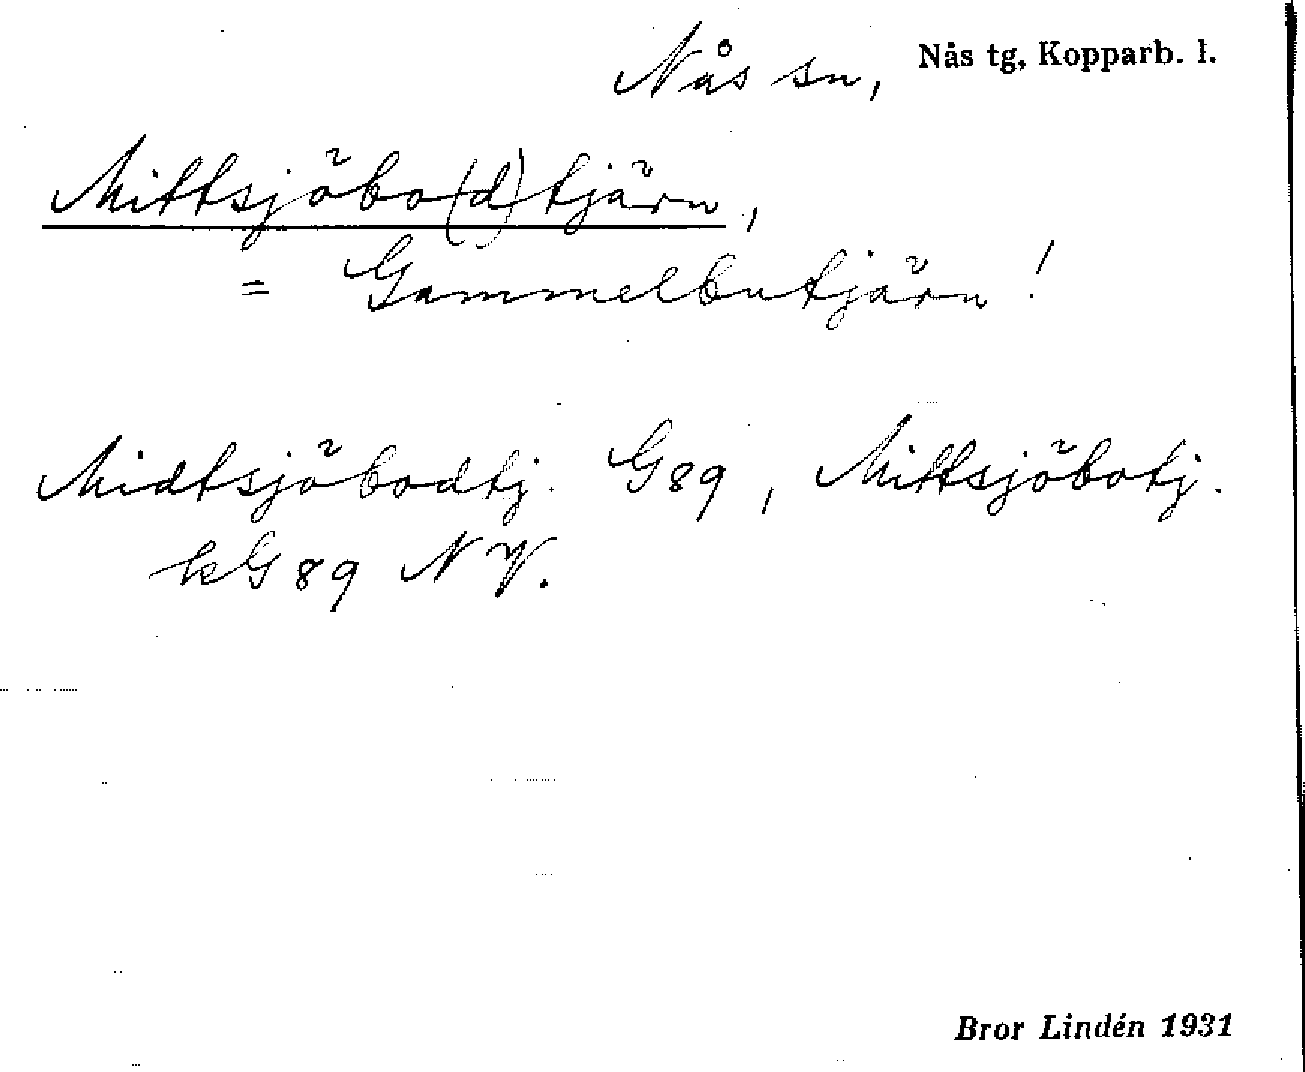 Nås sn, Nås tg, Kopparb. l.
Mittsjöbo(d)tjärn,
= Gammelbutjärn !
Midtsjöbodtj. G89, Mittsjöbotj.
kG89 NV.
Bror Lindén 1931